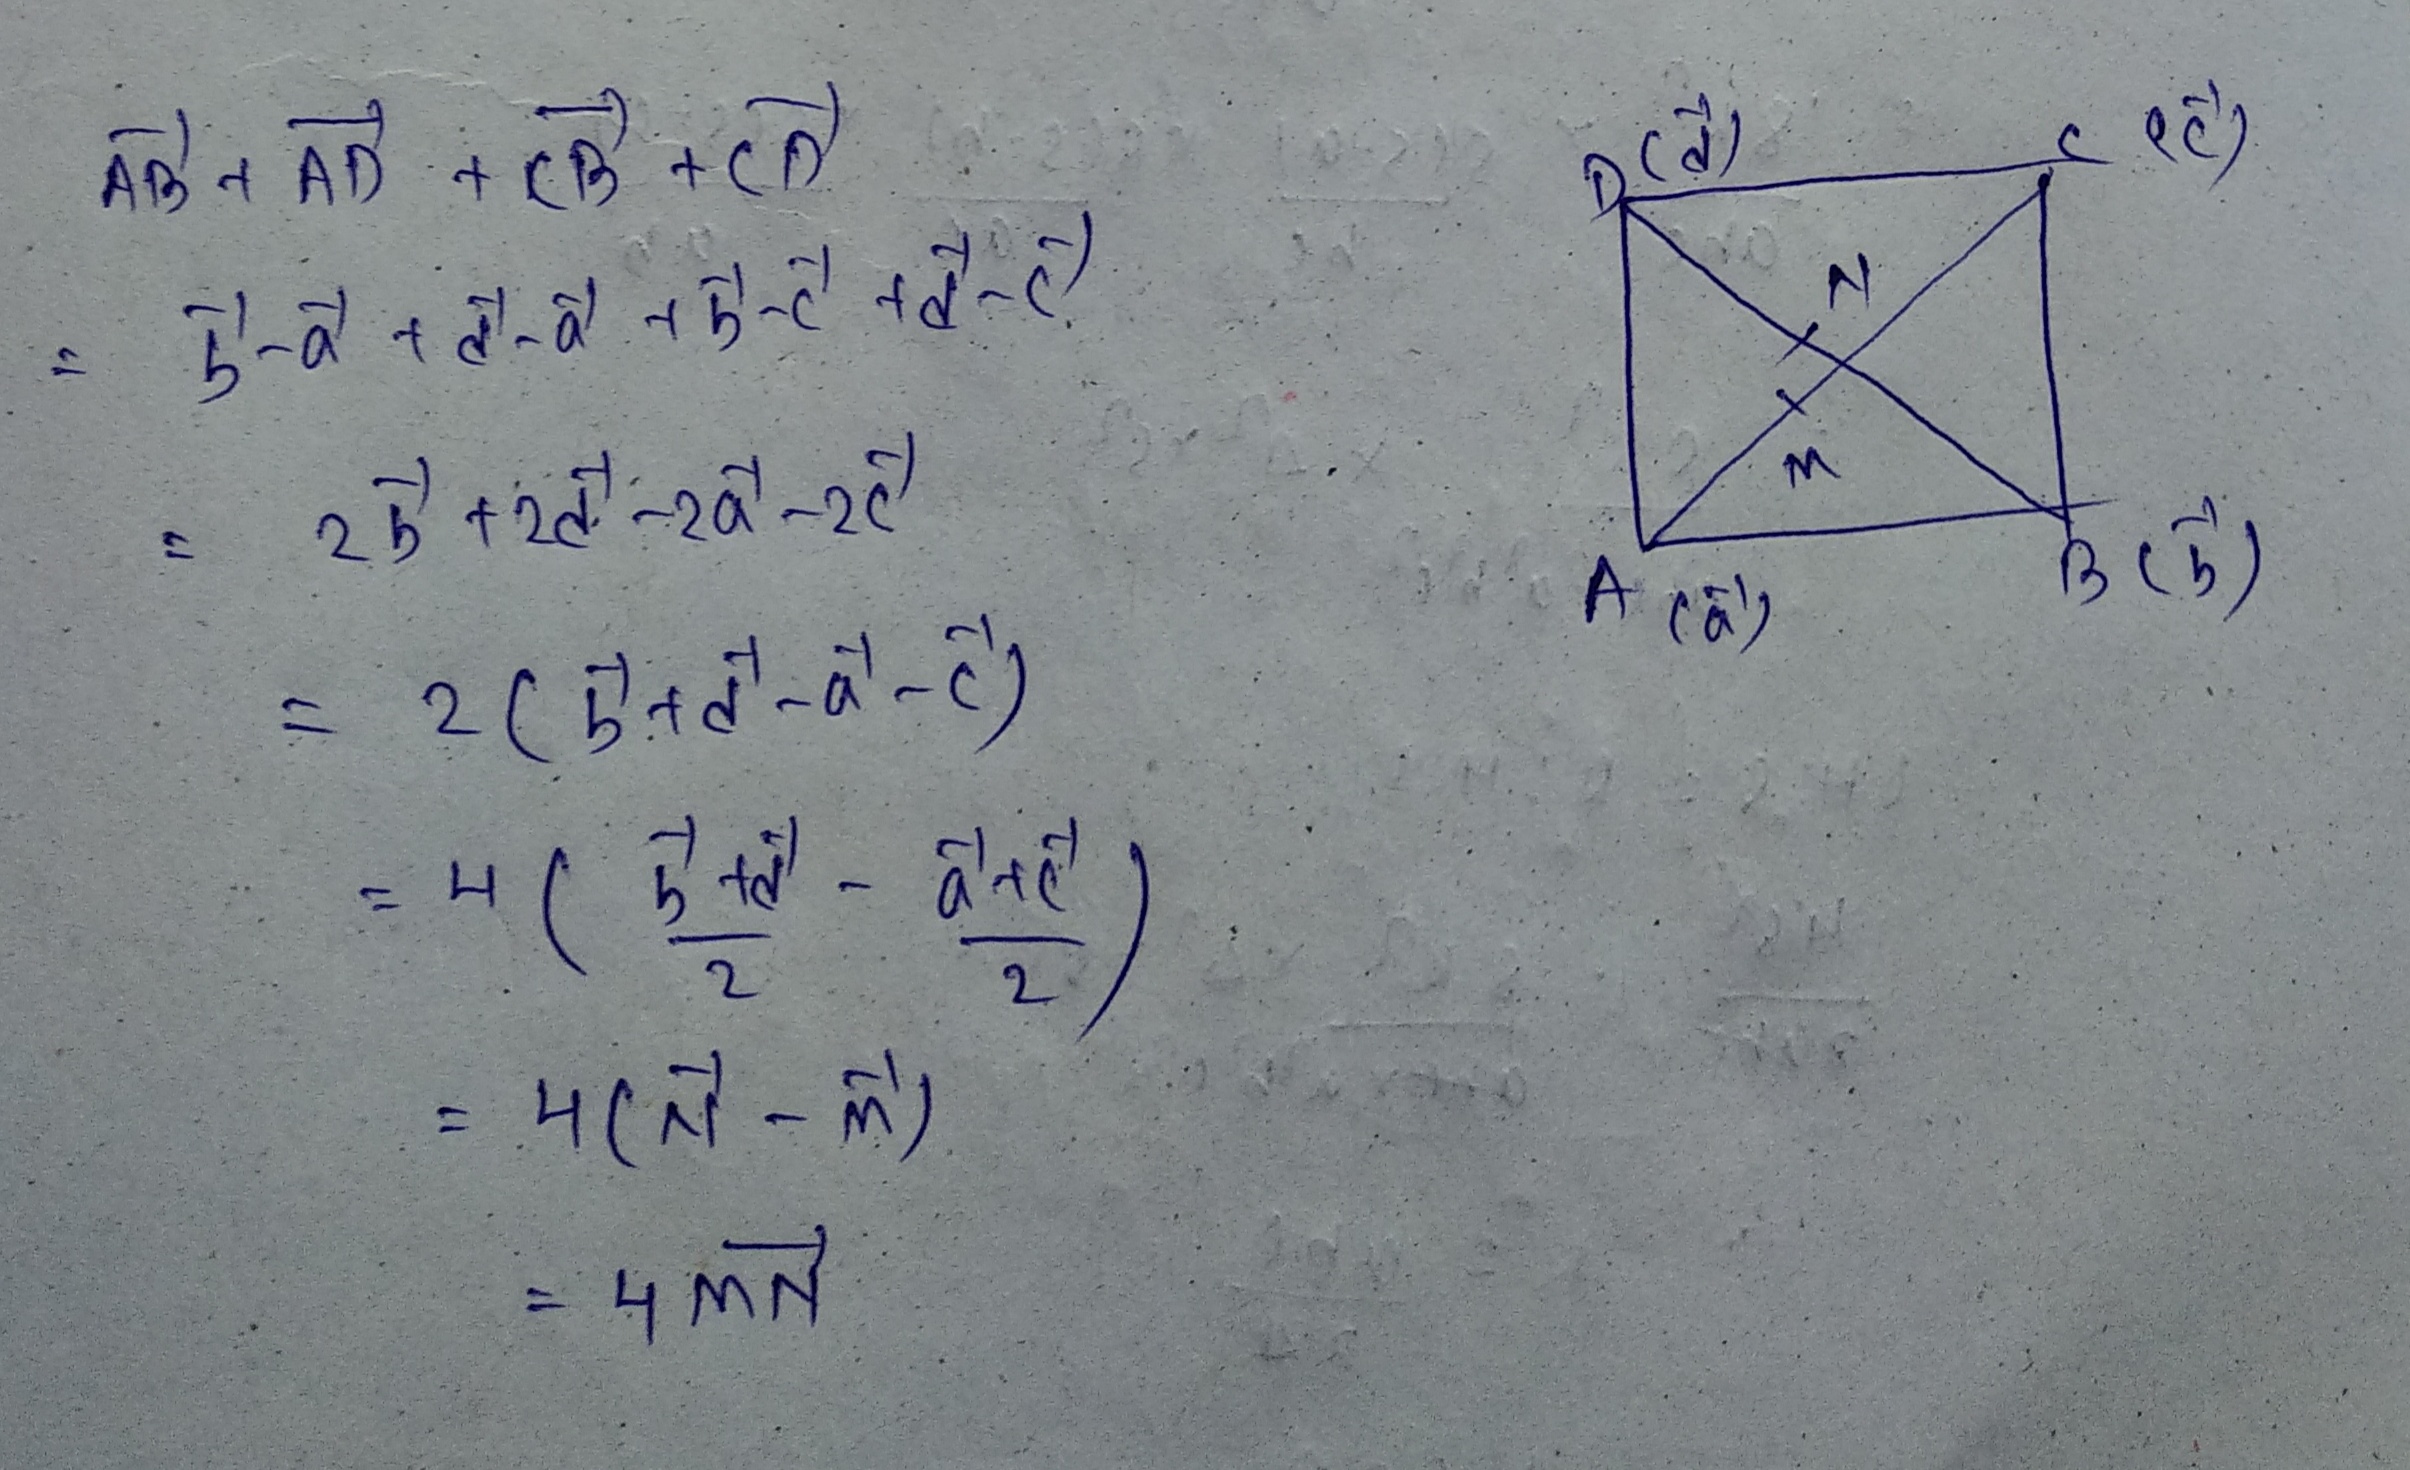 AB⃗ + AD⃗ + CB⃗ + CD⃗
= b⃗ - a⃗ + d⃗ - a⃗ + b⃗ - c⃗ + d⃗ - c⃗
= 2b⃗ + 2d⃗ - 2a⃗ - 2c⃗
= 2 ( b⃗ + d⃗ - a⃗ - c⃗ )
= 4 ( (b⃗ + d⃗)/2 - (a⃗ + c⃗)/2 )
= 4 ( N⃗ - M⃗ )
= 4 MN⃗
D (d⃗) C (c⃗)
N
M
A (a⃗) B (b⃗)